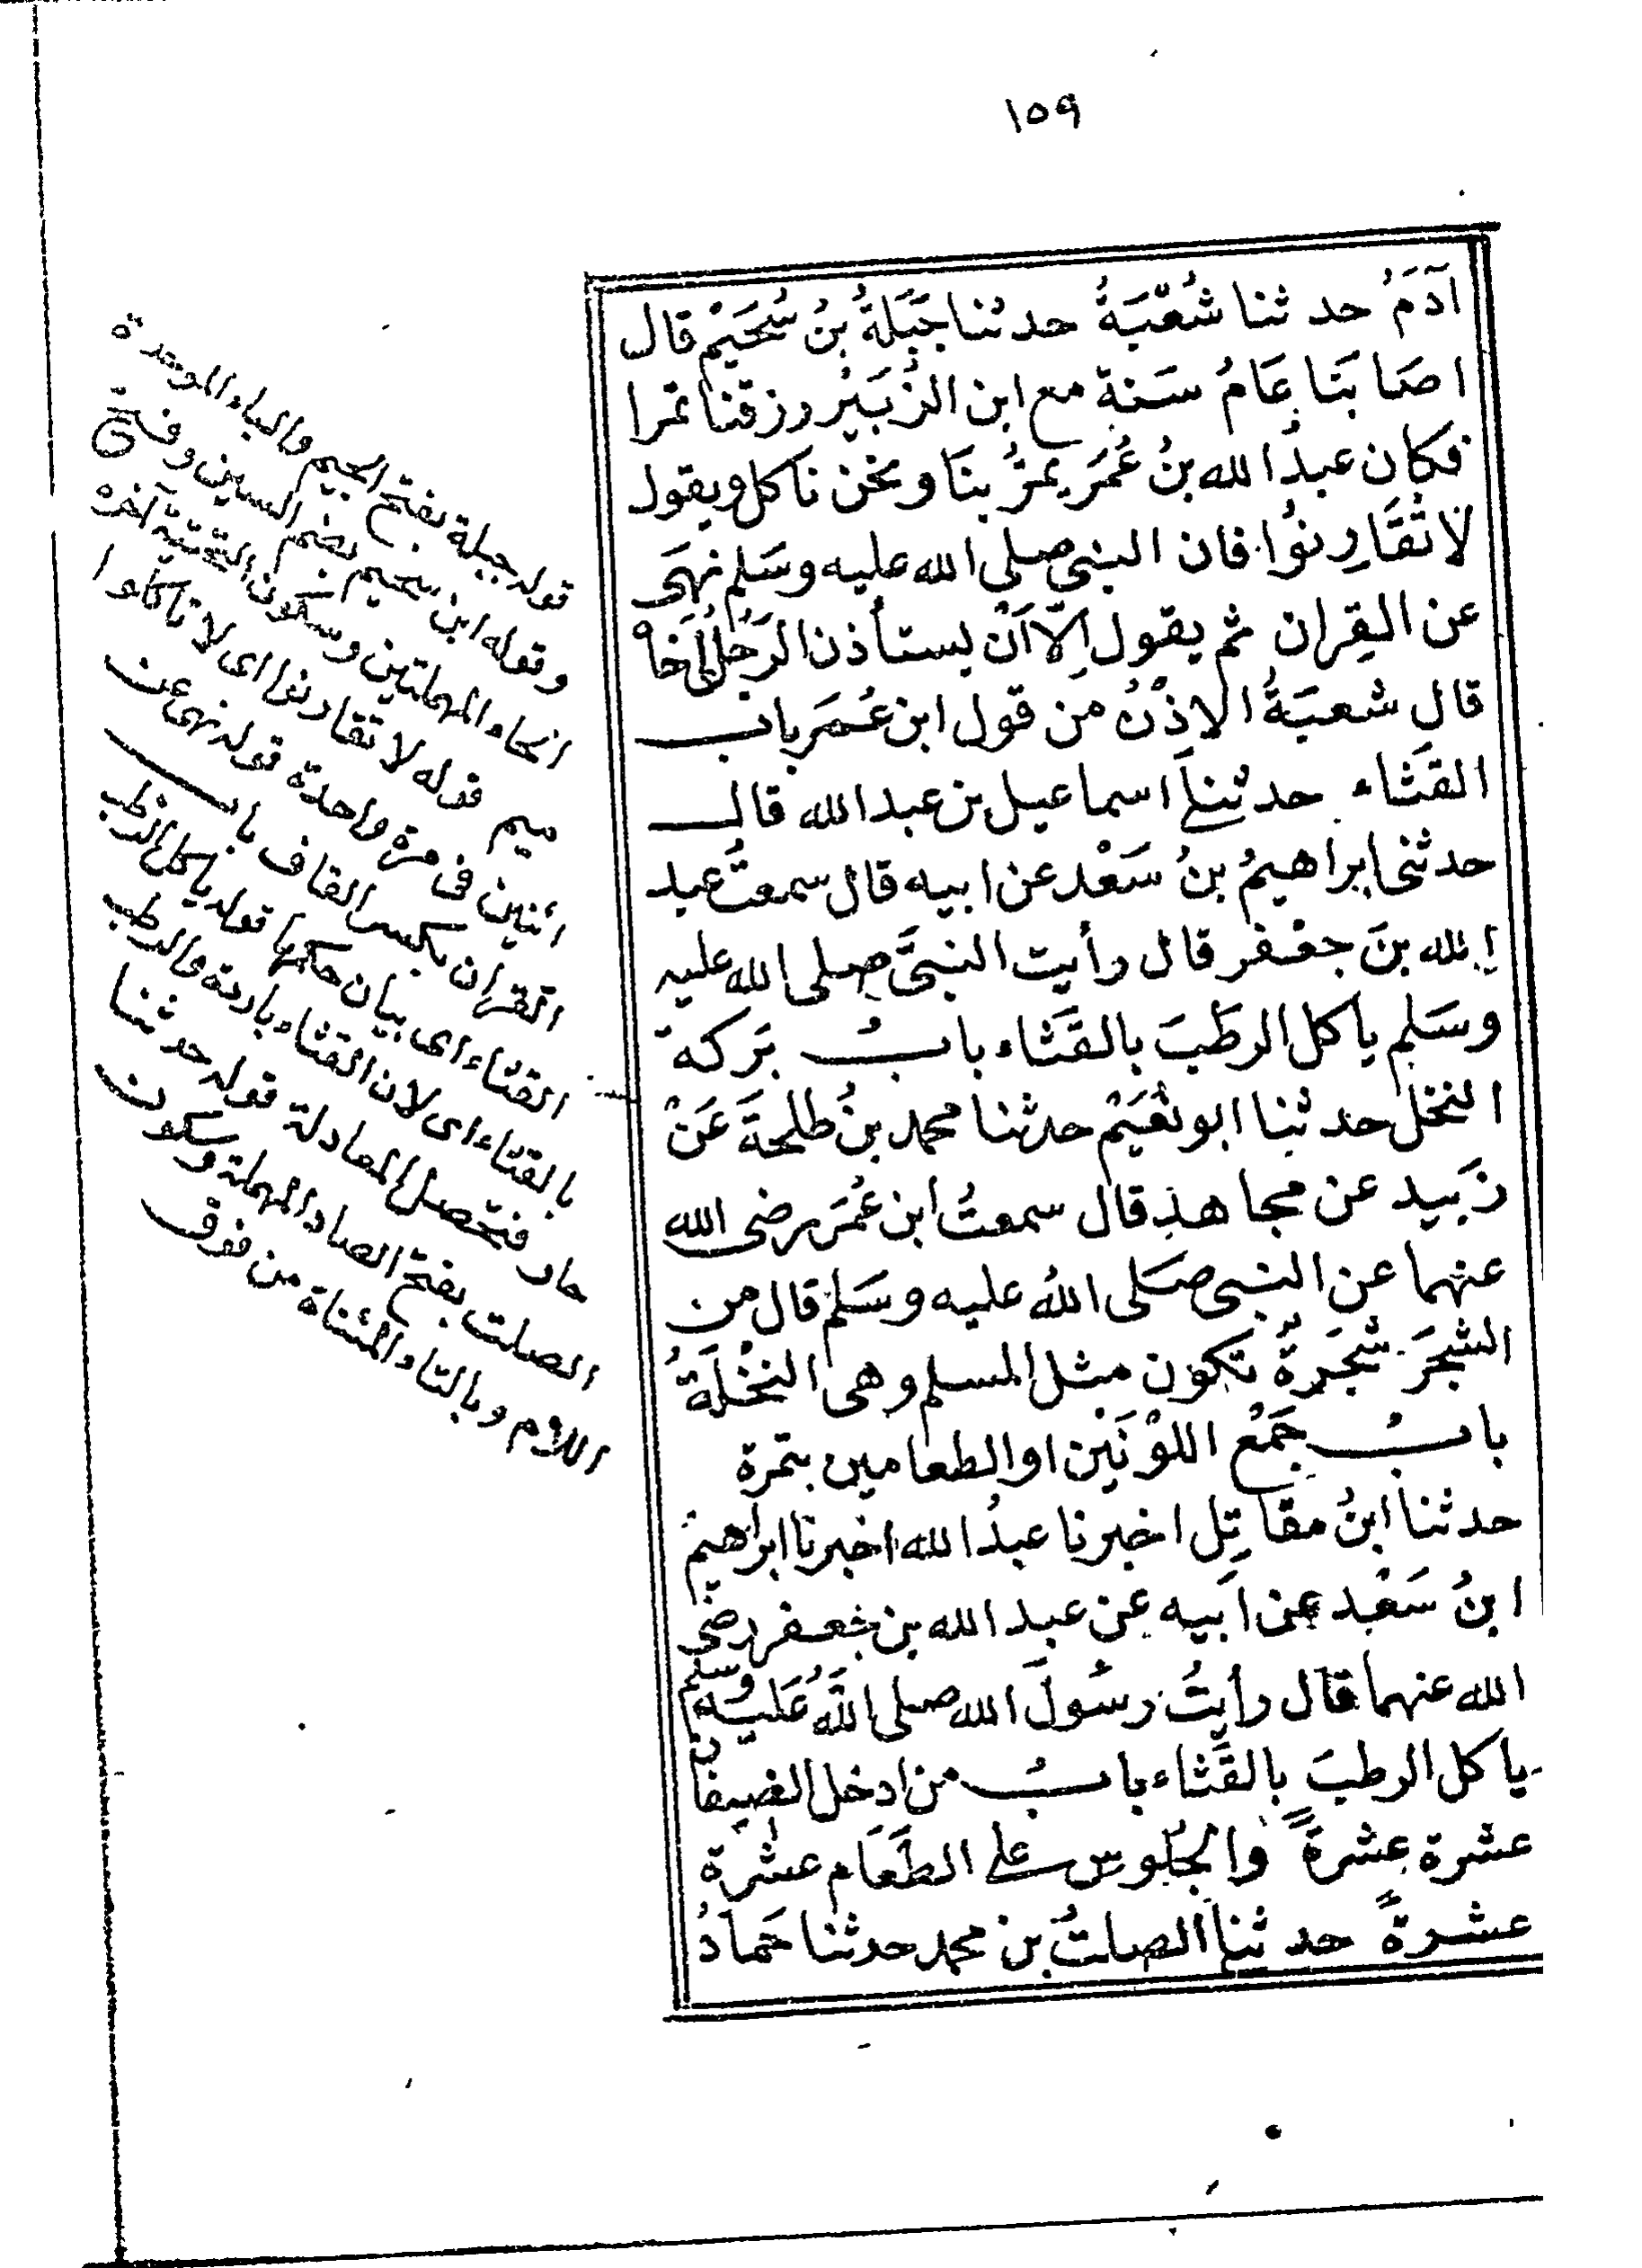 ١٥٩
آدَمُ حدثنا شُعْبَةُ حدثنا جَبَلَةُ بنُ سُحَيْم قال
اصَابَنَا عَامُ سَنَةٍ مع ابن الزُّبَيْر رزقنا تمرا
فكان عبدُ الله بنُ عُمَرَ يمرُّ بنَا ونحن ناكل ويقول
لا تُقَارِنُوا فان النبى صلى الله عليه وسَلم نهَى
عن القِران ثم يقول اِلّا اَنْ يستأذن الرَجُلُ اَخَاهُ
قال شعبَةُ الاِذْنُ من قول ابن عُمَر باب
القَثَّاء حدثنا اسماعيل بن عبد الله قال
حدثنى ابراهيمُ بنُ سَعْد عن ابيه قال سمعتُ عبد
الله بنَ جعْفر قال رأيت النبىَّ صلى الله عليه
وسَلم ياكل الرطَبَ بالقَثَّاء بابُ بَركة
النخل حدثنا ابو نُعَيْم حدثنا محمد بنُ طلحةَ عَنْ
زبَيد عن مجاهد قال سمعتُ ابن عُمَرَ رضى الله
عنهما عن النبى صَلى اللهُ عليه وسَلم قال من
الشجَرَ شَجَرةٌ تكون مثل المسلم وهى النَخْلَةُ
بابُ جَمْع اللوْنَيْن او الطعامين بتمرة
حدثنا ابنُ مقاتِل اخبرنا عبدُ الله اخبرنا ابراهيم
ابنُ سَعْد عن اَبيه عن عبد الله بن جعفر رضى
الله عنهما قال رأيتُ رسُولَ الله صلى اللهُ عَليه وسلم
ياكل الرطبَ بالقَثَّاء بابُ من ادخل الضيفان
عشرة عشرةً والجُلوس على الطَعَام عشرة
عشرةً حدثنا الصلتُ بن محمد حدثنا حَمادُ
قوله جبلة بفتح الجيم والباء الموحدة
وقوله ابن سحيم بضم السين وفتح
الحاء المهملتين وسكون التحتية آخره
ميم قوله لا تقارنوا اى لا تاكلوا
اثنين فى مرة واحدة قوله نهى عن
القران بكسر القاف باب
القثاء اى بيان حكمها قوله ياكل الرطب
بالقثاء اى لان القثاء باردة والرطب
حار فتحصل المعادلة قوله حدثنا
الصلت بفتح الصاد المهملة وسكون
اللام وبالتاء المثناة من فوق